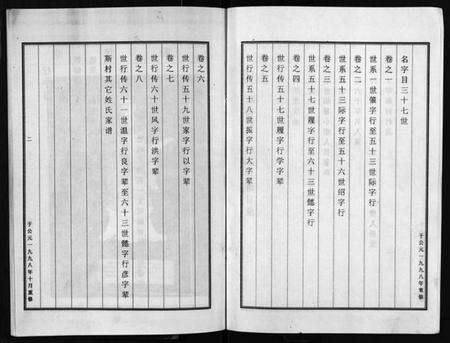 名字目三十七世
卷之一
世系一世催字行至五十三世际字行
卷之二
世系五十三际字行至五十六世绍字行
卷之三
世系五十七世履字行至六十三世懿字行
卷之四
世行传五十七世履字行学字辈
卷之五
世行传五十八世振字行大字辈
于公元一九九八年重修
卷之六
世行传五十九世家字行以字辈
卷之七
世行传六十世风字行洪字辈
卷之八
世行传六十一世温字行良字辈至六十三世懿字行彦字辈
斯村其它姓氏家谱
二
于公元一九九八年十月重修